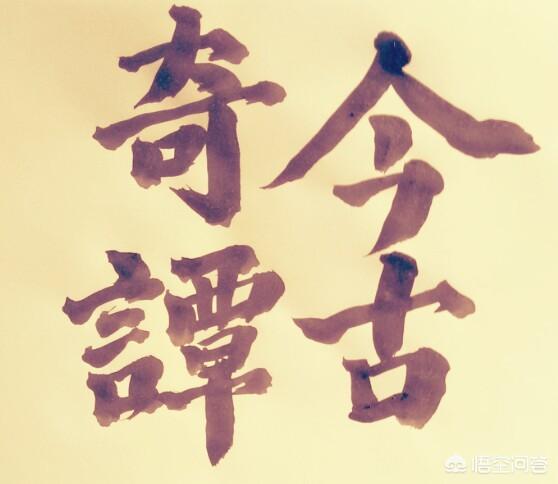 今古
奇譚
悟空问答